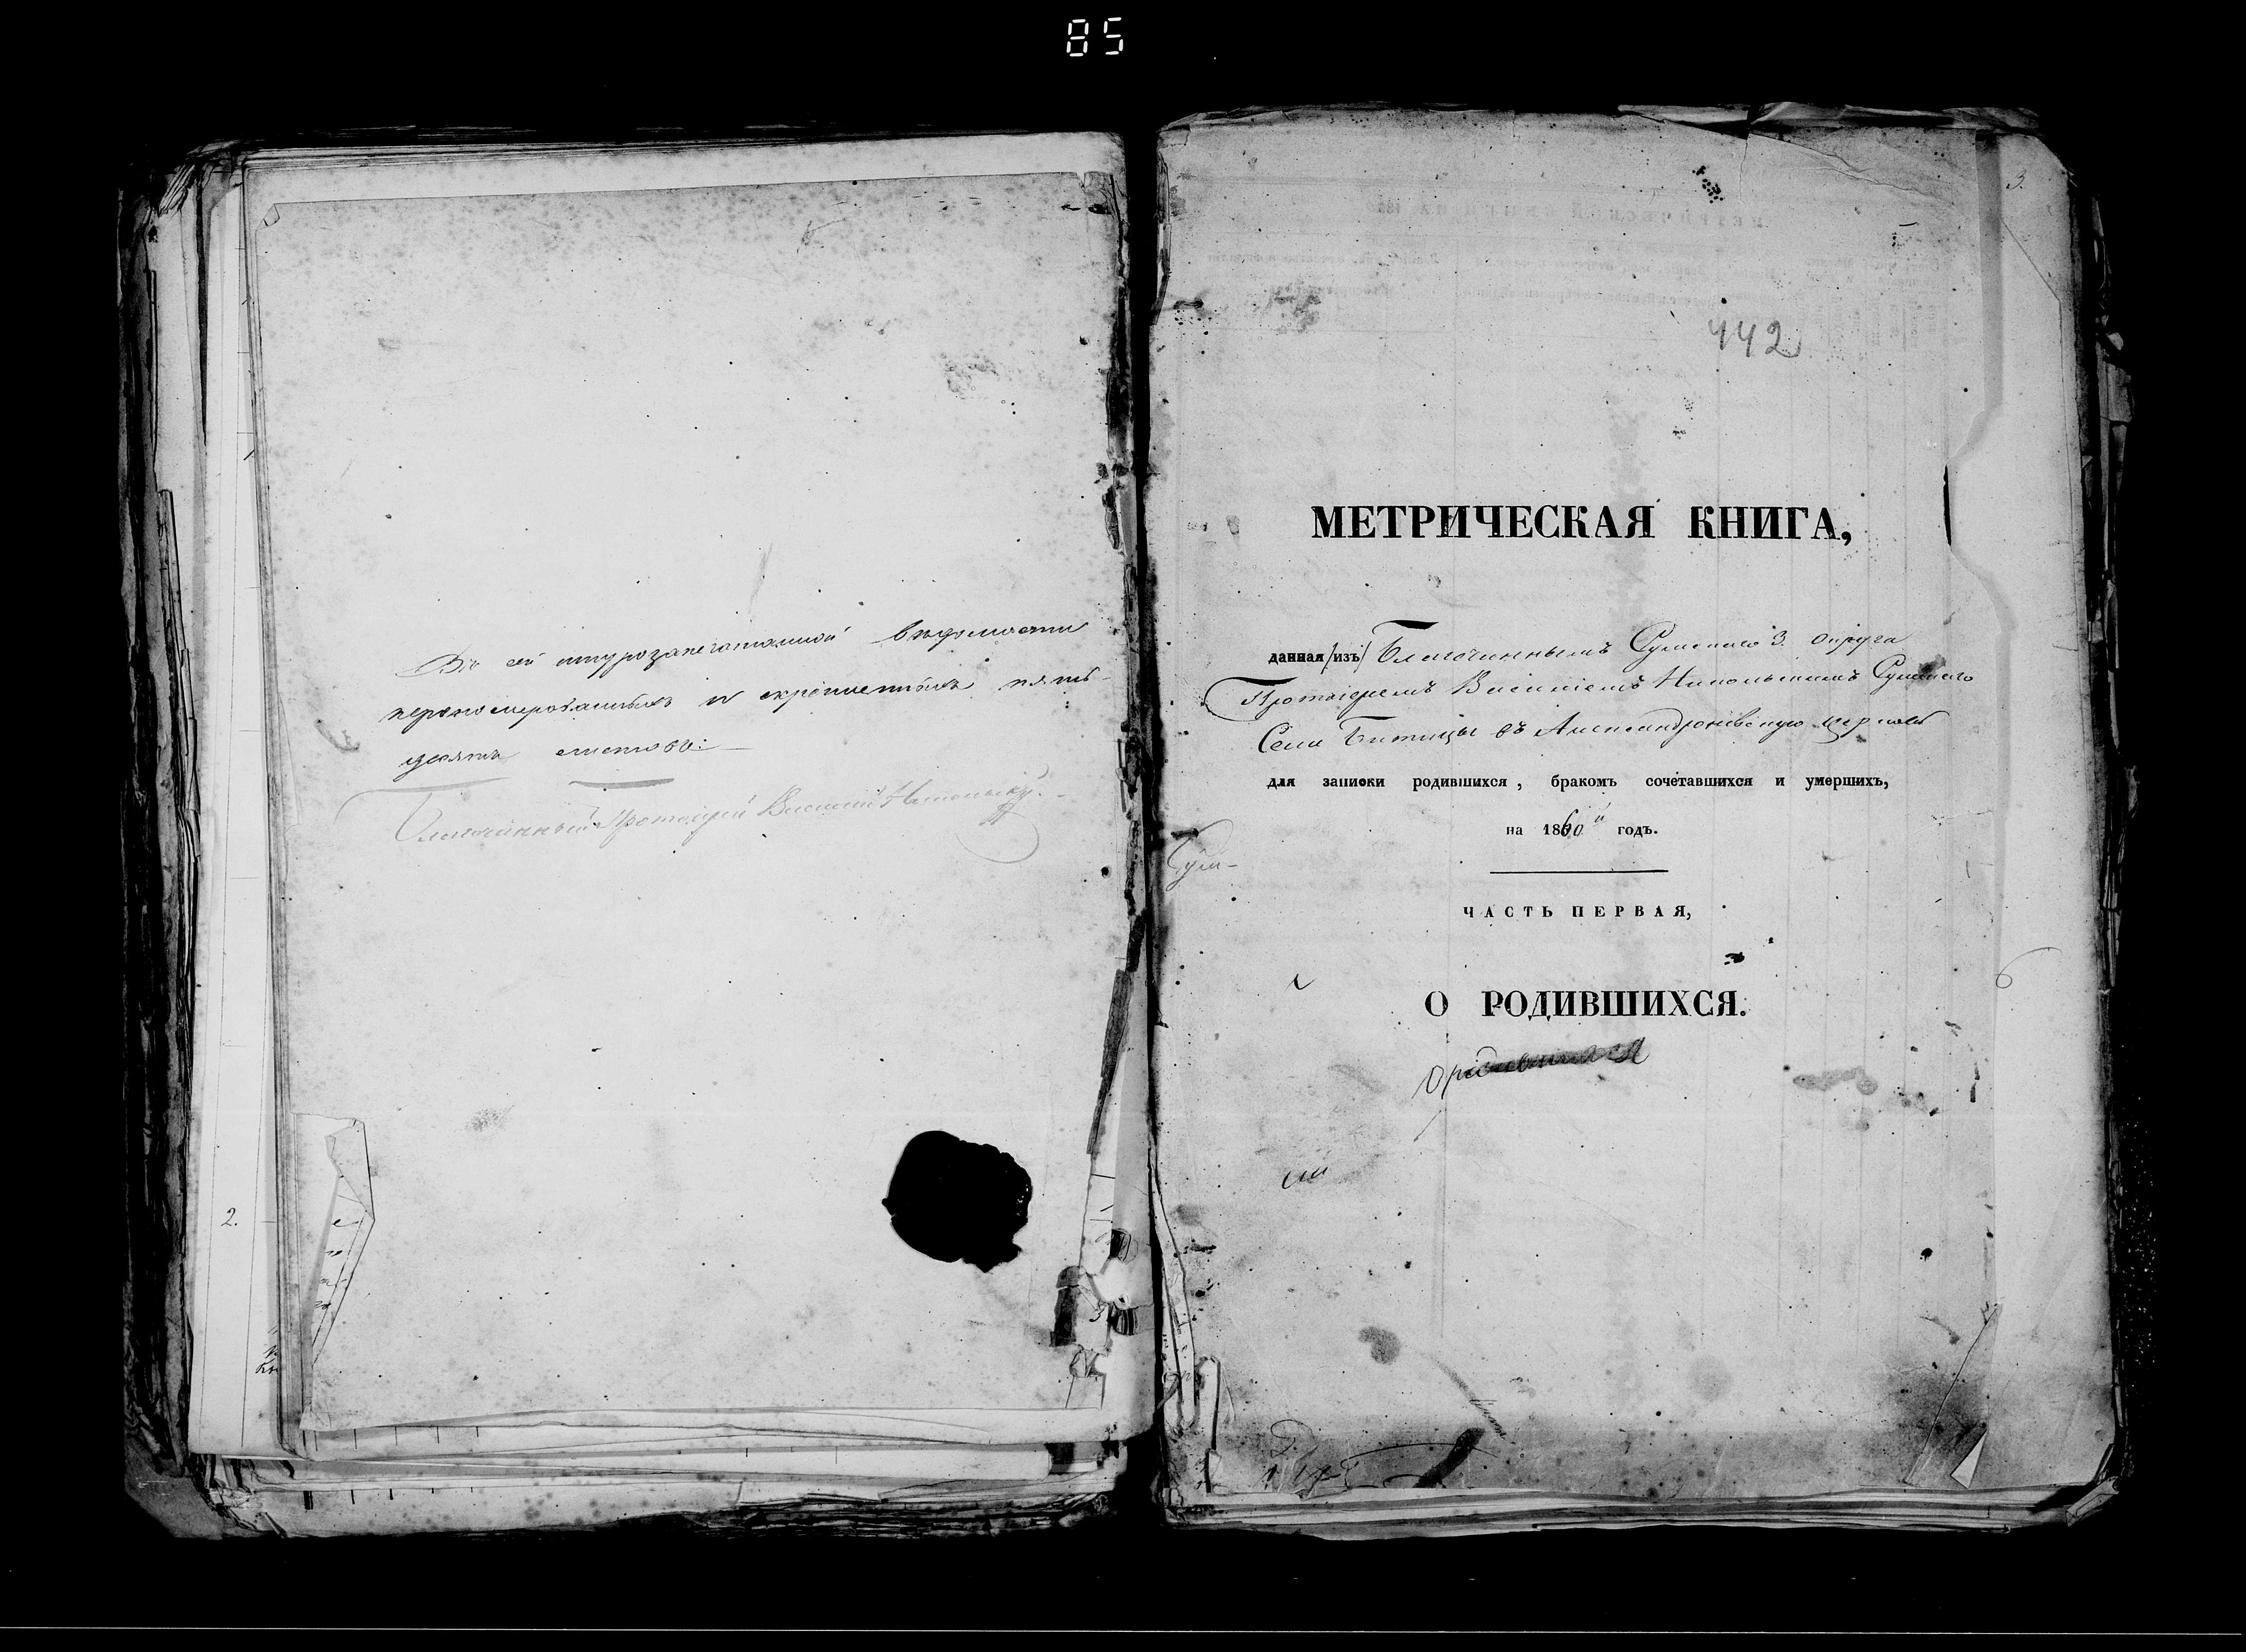 85
Въ сей шнурозапечатанной вѣдомости
перенумерованныхъ и скрепленныхъ пять
десятъ листовъ:
Благочинный Протоіерей Василій Никольскій.
2.
3.
442
МЕТРИЧЕСКАЯ КНИГА,
данная (изъ) Благочиннымъ Сумскаго 3. округа
Протоіереемъ Василіемъ Никольскимъ Сумскаго
Села Битицы въ Александроневскую церковь
для записки родившихся, бракомъ сочетавшихся и умершихъ,
на 1860й годъ.
Сум-
ЧАСТЬ ПЕРВАЯ,
О РОДИВШИХСЯ.